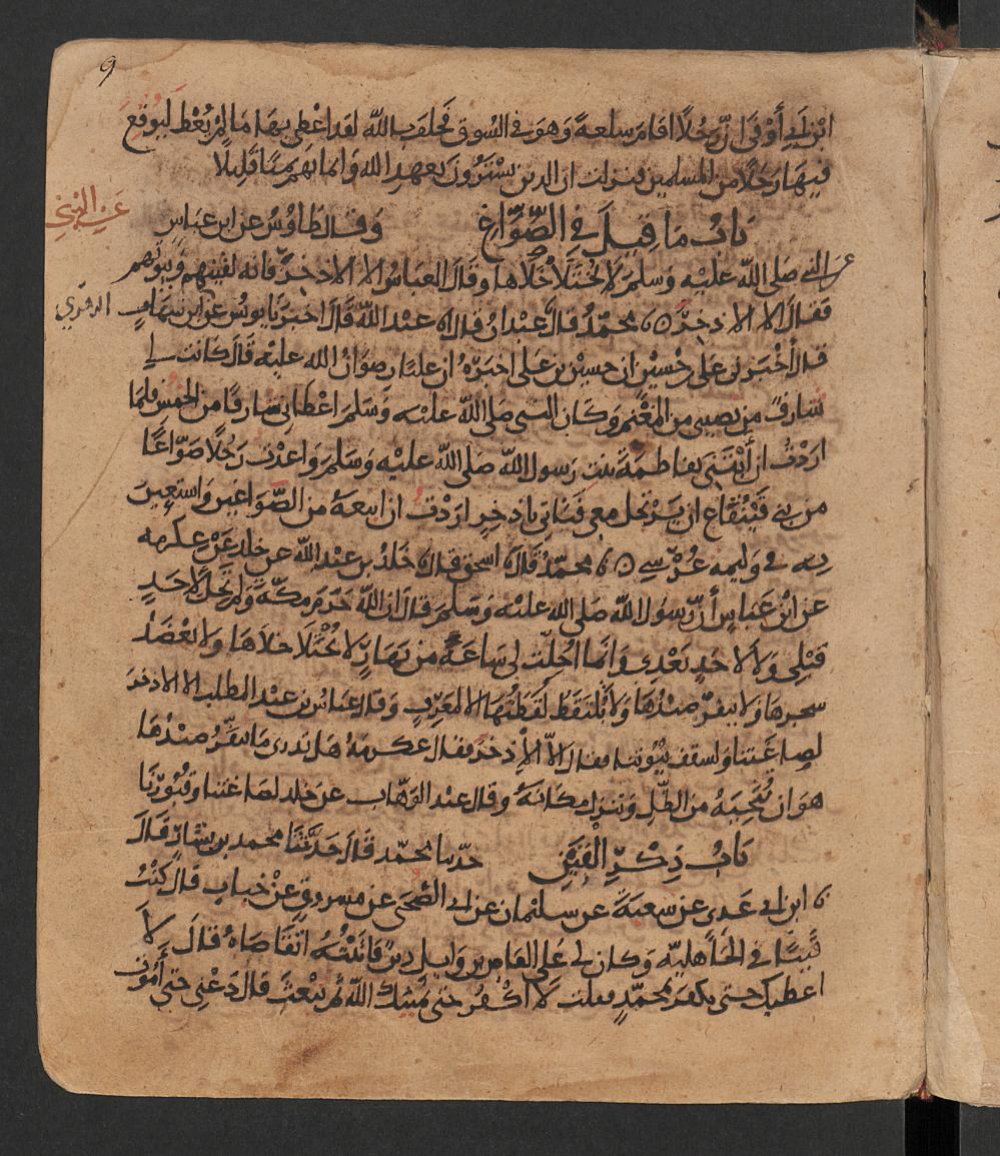 9
ابن أبي أوفى ان رجلا اقام سلعة وهو في السوق فحلف بالله لقد اعطي بها ما لم يعط ليوقع
فيها رجلا من المسلمين فنزلت ان الذين يشترون بعهد الله وايمانهم ثمنا قليلا
باب ما قيل في الصواغ وقال طاوس عن ابن عباس
عن النبي صلى الله عليه وسلم لا يختلا خلاها وقال العباس الا الاذخر فانه لقينهم وبيوتهم
فقال الا الاذخر محمد قال عبدان قال عبد الله قال اخبرنا يونس عن ابن شهاب
قال اخبرني علي بن حسين ان حسين بن علي اخبره ان عليا رضوان الله عليه قال كانت لي
شارف من نصيبي من المغنم وكان النبي صلى الله عليه وسلم اعطاني شارفا من الخمس فلما
اردت ان أبتني بفاطمة بنت رسول الله صلى الله عليه وسلم واعدت رجلا صواغا
من بني قينقاع ان يرتحل معي فناتي باذخر اردت ان ابيعه من الصواغين واستعين
به في وليمة عرسي محمد قال اسحق قال خلد بن عبد الله عن خلد عن عكرمه
عن ابن عباس أن رسول الله صلى الله عليه وسلم قال ان الله حرم مكة ولم تحل لاحد
قبلي ولا لاحد بعدي وانما احلت لي ساعة من نهار لا يختلا خلاها ولا يعضد
شجرها ولا ينفر صيدها ولا يلتقط لقطتها الا لمعرف وقال عباس بن عبد المطلب الا الاذخر
لصاغتنا ولسقف بيوتنا فقال الا الاذخر فقال عكرمة هل تدري ما ينفر صيدها
هو ان تنحيه من الظل وتنزل مكانه وقال عبد الوهاب عن خلد لصاغتنا وقبورنا
باب ذكر القين حدثنا محمد قال حدثنا محمد بن بشار قال
ابن ابي عدي عن شعبة عن سليمان عن ابي الضحى عن مسروق عن خباب قال كنت
قينا في الجاهلية وكان لي على العاص بن وايل دين فاتيته اتقاضاه قال لا
اعطيك حتى تكفر بمحمد فقلت لا اكفر حتى يميتك الله ثم تبعث قال دعني حتى أموت